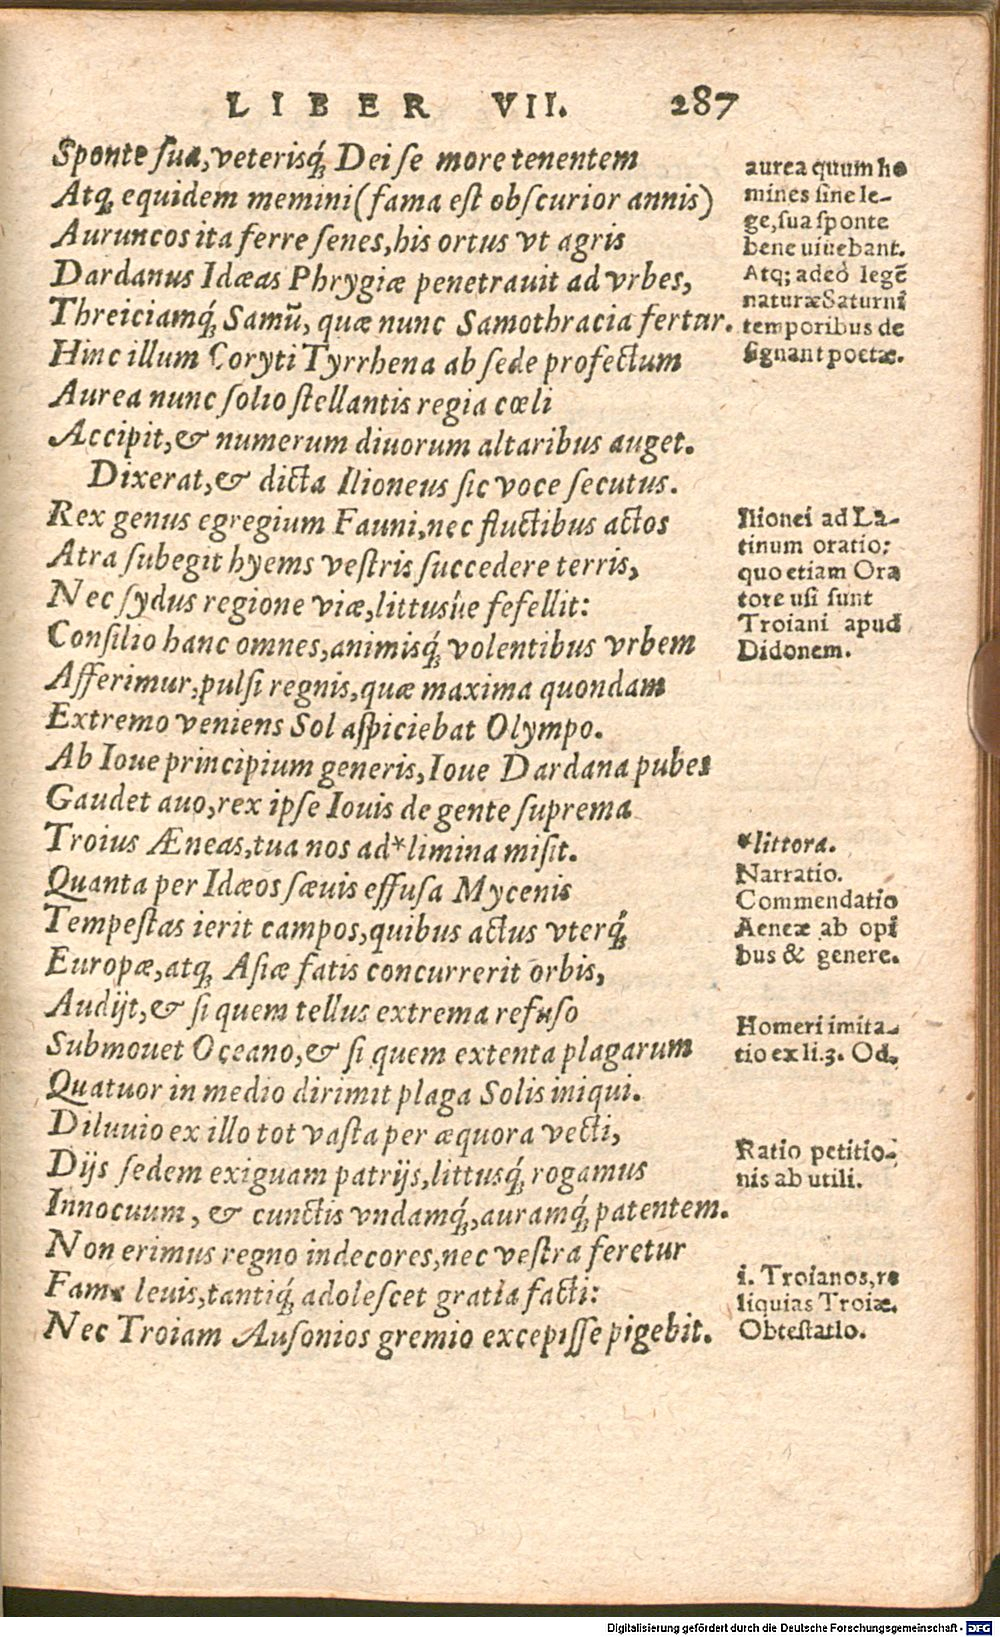 LIBER VII. 287
Sponte ſua, veterisq́; Dei ſe more tenentem
Atq; equidem memini (fama eſt obſcurior annis)
Auruncos ita ferre ſenes, his ortus vt agris
Dardanus Idæas Phrygiæ penetrauit ad vrbes,
Threiciamq́; Samū, quæ nunc Samothracia fertur.
Hinc illum Coryti Tyrrhena ab ſede profectum
Aurea nunc ſolio ſtellantis regia cœli
Accipit, & numerum diuorum altaribus auget.
Dixerat, & dicta Ilioneus ſic voce ſecutus.
Rex genus egregium Fauni, nec fluctibus actos
Atra ſubegit hyems veſtris ſuccedere terris,
Nec ſydus regione viæ, littusúe fefellit:
Conſilio hanc omnes, animisq́; volentibus vrbem
Afferimur, pulſi regnis, quæ maxima quondam
Extremo veniens Sol aſpiciebat Olympo.
Ab Ioue principium generis, Ioue Dardana pubes
Gaudet auo, rex ipſe Iouis de gente ſuprema
Troius Æneas, tua nos ad *limina miſit.
Quanta per Idæos ſæuis effuſa Mycenis
Tempeſtas ierit campos, quibus actus vterq́;
Europæ, atq; Aſiæ fatis concurrerit orbis,
Audijt, & ſi quem tellus extrema refuſo
Submouet Oceano, & ſi quem extenta plagarum
Quatuor in medio dirimit plaga Solis iniqui.
Diluuio ex illo tot vaſta per æquora vecti,
Dijs ſedem exiguam patrijs, littusq́; rogamus
Innocuum, & cunctis vndamq́;, auramq́; patentem.
Non erimus regno indecores, nec veſtra feretur
Fama leuis, tantiq́; adoleſcet gratia facti:
Nec Troiam Auſonios gremio excepiſſe pigebit.
aurea quum ho
mines ſine le-
ge, ſua ſponte
bene uiuebant.
Atq; adeò legē
naturæ Saturni
temporibus de
ſignant poetæ.
Ilionei ad La-
tinum oratio:
quo etiam Ora
tore uſi ſunt
Troiani apud
Didonem.
*littora.
Narratio.
Commendatio
Aeneæ ab opi
bus & genere.
Homeri imita-
tio ex li. 3. Od.
Ratio petitio-
nis ab utili.
i. Troianos, re
liquias Troiæ.
Obteſtatio.
Digitalisierung gefördert durch die Deutsche Forschungsgemeinschaft - DFG